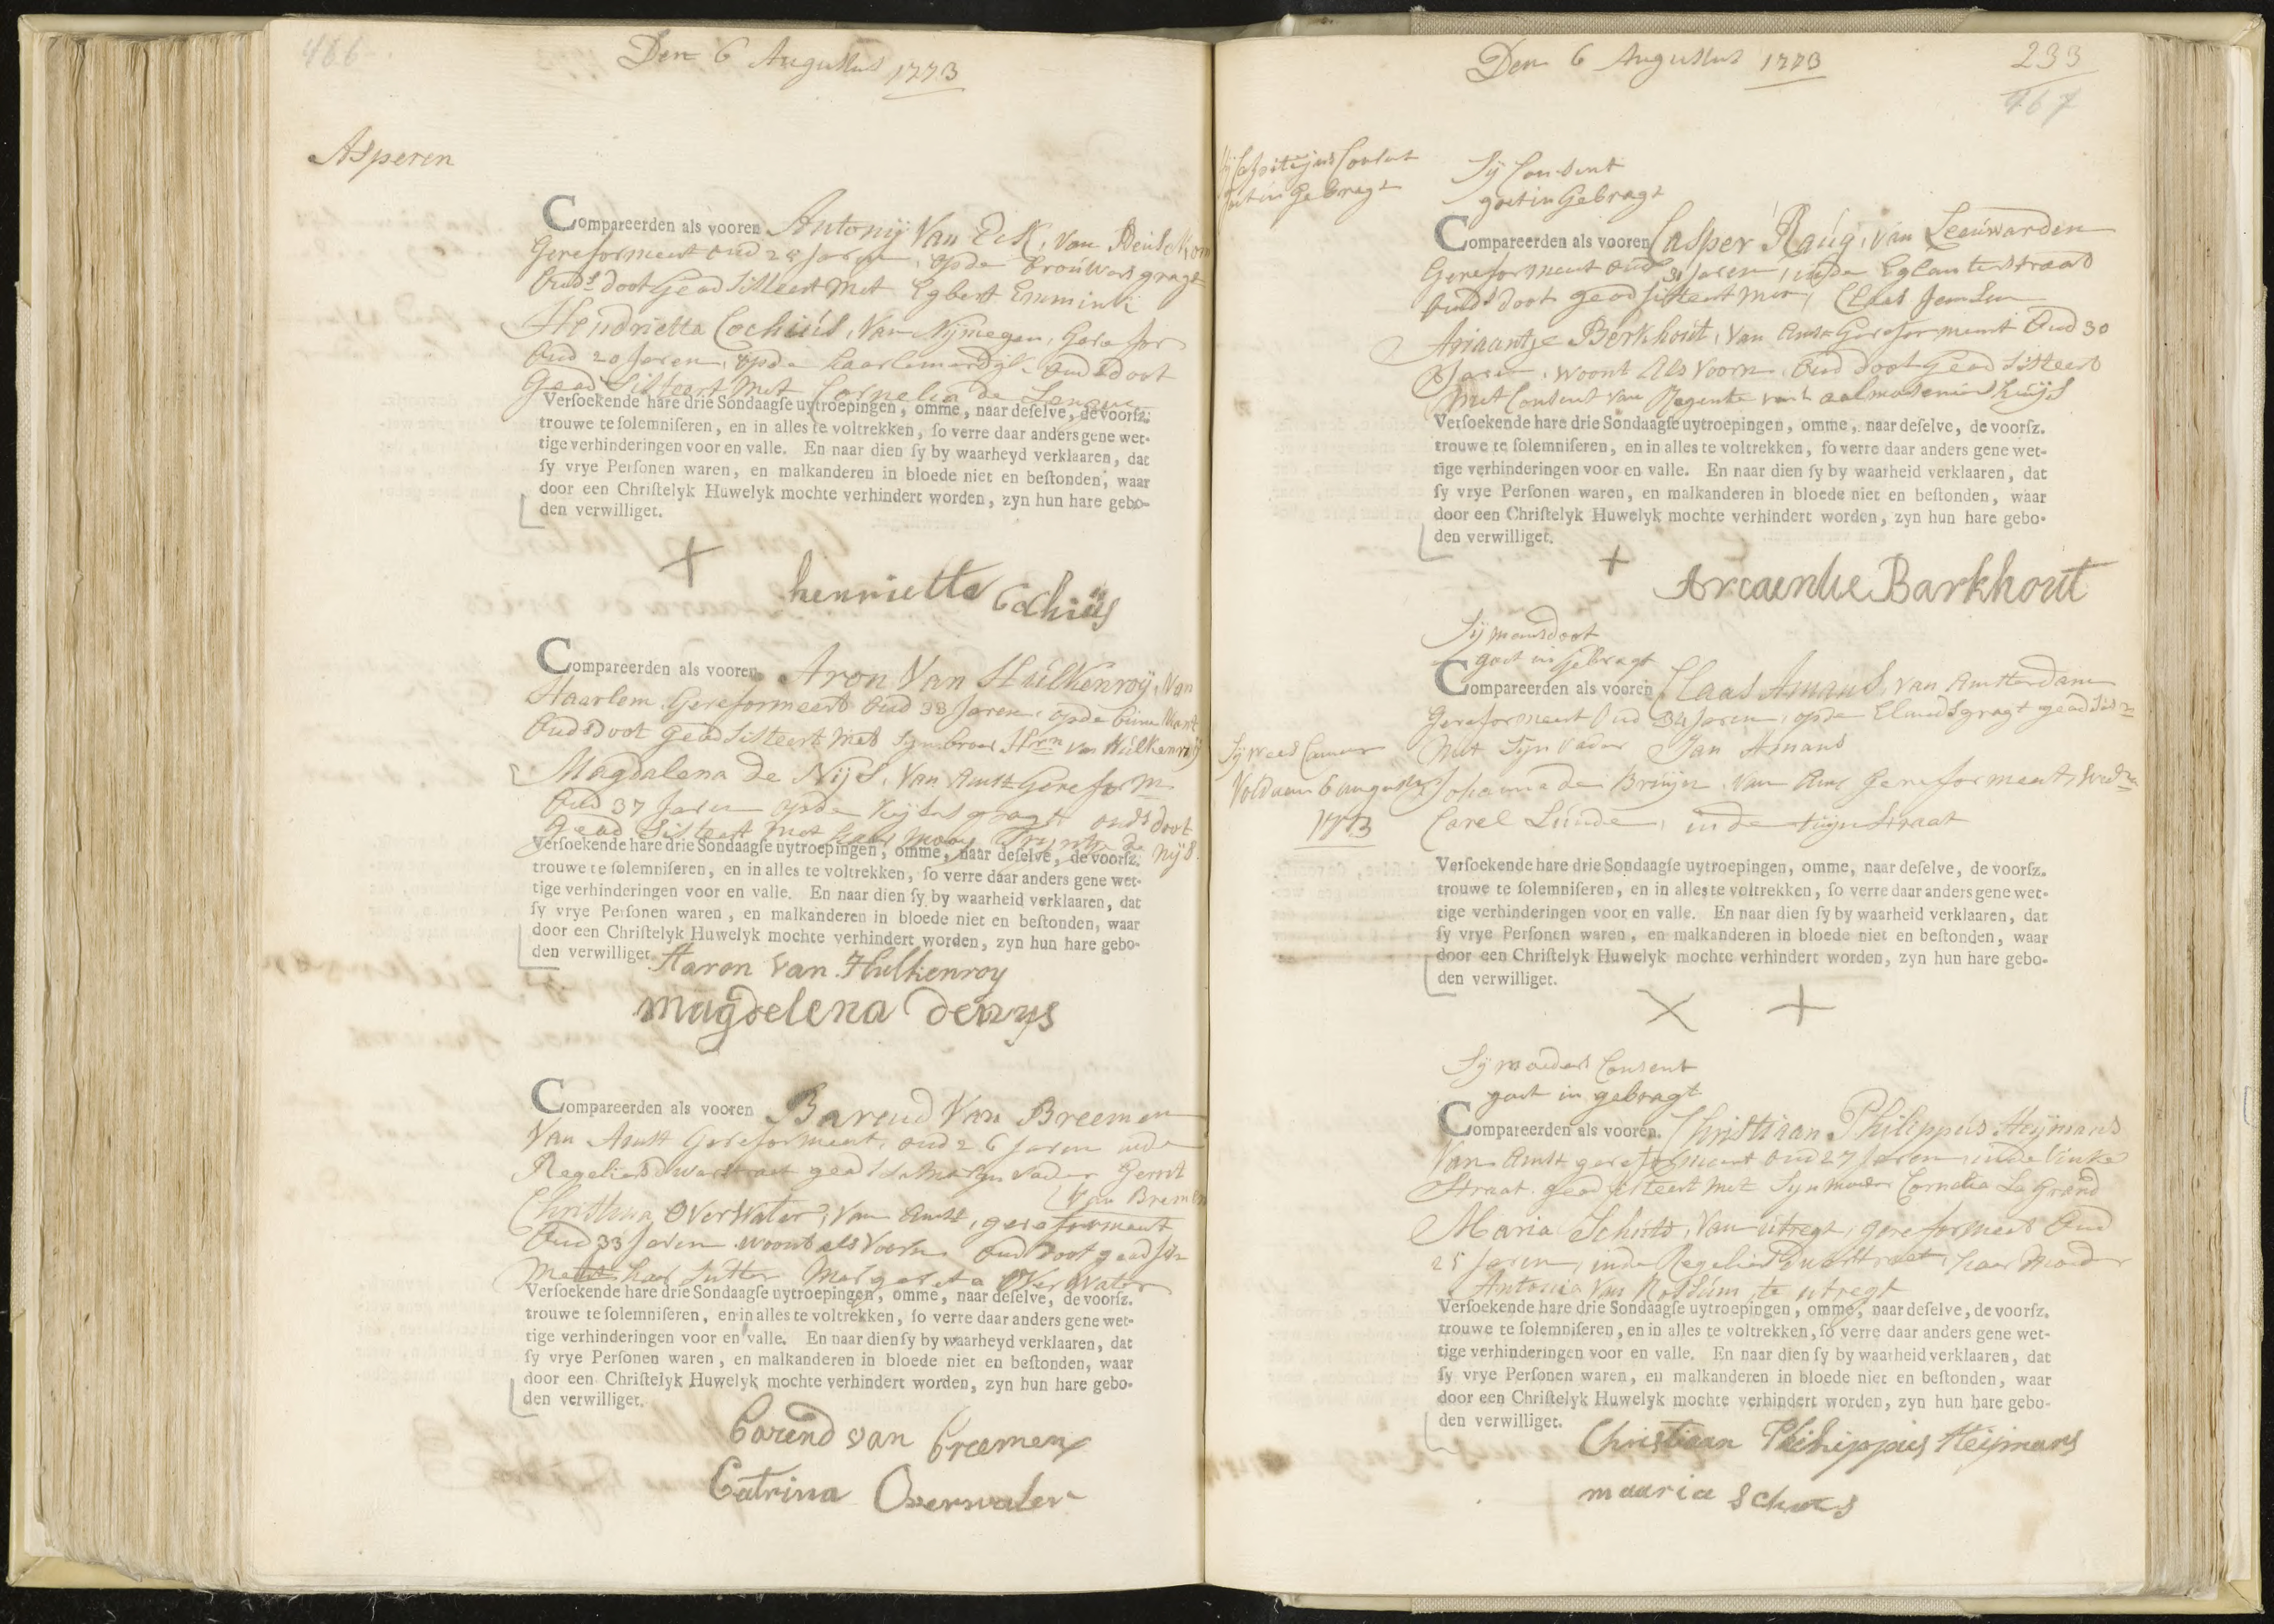 466
Den 6 Augustus 1773
Asperen
Compareerden als vooren Antonij Van Eck, Van
Gereformeert oud 28 Jaren, op de brouwersgragt
Ouds doot Geadsisteert Met Egbert Emmink
Hendrietta Cochius, Van Nijmegen, Gerefor
Oud 20 Jaren, op de haarlemerdijk ouds doot
Geadsisteert Met Cornelia de
Versoekende hare drie Sondaagse uytroepingen, omme, naar deselve, de voorsz.
trouwe te solemniseren, en in alles te voltrekken, so verre daar anders gene wet-
tige verhinderingen voor en valle. En naar dien sy by waarheyd verklaaren, dat
sy vrye Personen waren, en malkanderen in bloede niet en bestonden, waar
door een Christelyk Huwelyk mochte verhindert worden, zyn hun hare gebo-
den verwilliget.
henrietta Cochius
Compareerden als vooren Aron Van Hulkenroij, Van
Haarlem Gereformeert Oud 33 Jaren, op de binne kant
Ouds doot Geadsisteert Met Syn broer Hrm Van Hulkenroij
Magdalena de Nijs, Van Amst Gereform
Oud 37 Jaren op de Keysersgragt ouds doot
Geadsisteert Met haar Trijntje de Nijs
Versoekende hare drie Sondaagse uytroepingen, omme, naar deselve, de voorsz.
trouwe te solemniseren, en in alles te voltrekken, so verre daar anders gene wet-
tige verhinderingen voor en valle. En naar dien sy by waarheid verklaaren, dat
sy vrye Personen waren, en malkanderen in bloede niet en bestonden, waar
door een Christelyk Huwelyk mochte verhindert worden, zyn hun hare gebo-
den verwilliget.
Aaron van Hulkenroy
Magdelena denys
Compareerden als vooren Barend Van Breemen
Van Amst Gereformeert, oud 26 Jaren in de
Reguliersdwarstraat geads Met Syn Vader Gerrit
Van Bremen
Christina Overwater, Van Amst, gereformeert
Oud 33 Jaren woont als Voorn Ouds doot geadsis
Met haar Suster Margareta Overwater
Versoekende hare drie Sondaagse uytroepingen, omme, naar deselve, de voorsz.
trouwe te solemniseren, en in alles te voltrekken, so verre daar anders gene wet-
tige verhinderingen voor en valle. En naar dien sy by waarheyd verklaaren, dat
sy vrye Personen waren, en malkanderen in bloede niet en bestonden, waar
door een Christelyk Huwelyk mochte verhindert worden, zyn hun hare gebo-
den verwilliget.
barend van breemen
Catrina Overwater
Den 6 Augustus 1773
233
467
Consent
goet in Gebragt
Sij Consent
goet in Gebragt
Compareerden als vooren Casper Raug, Van Leeuwarden
Gereformeert Oud 31 Jaren, in de Eglantierstraat
Ouds doot geadsisteert Met, Claas Jansen
Ariaantje Berkhout, Van Amst Gereformeert Oud 30
Jaren, woont Als Voorn, Ouds doot Geadsisteert
Met Consent Van Regente van't aalmoseniershuijs
Versoekende hare drie Sondaagse uytroepingen, omme, naar deselve, de voorsz.
trouwe te solemniseren, en in alles te voltrekken, so verre daar anders gene wet-
tige verhinderingen voor en valle. En naar dien sy by waarheid verklaaren, dat
sy vrye Personen waren, en malkanderen in bloede niet en bestonden, waar
door een Christelyk Huwelyk mochte verhindert worden, zyn hun hare gebo-
den verwilliget.
Arcaentie Barkhout
Sij mans doot
goet in Gebragt
Compareerden als vooren Claas Amans, Van Amsterdam
Gereformeert Oud 34 Jaren, op de Elandsgragt geadsist
Met Syn Vader Jan Amans
Sij Weescamer
Voldaan 6 augustus
1773
Johanna de Bruijn, Van Ams Gereformeert, Wed
Carel Lunde, in de tuynstraat
Versoekende hare drie Sondaagse uytroepingen, omme, naar deselve, de voorsz.
trouwe te solemniseren, en in alles te voltrekken, so verre daar anders gene wet-
tige verhinderingen voor en valle. En naar dien sy by waarheid verklaaren, dat
sy vrye Personen waren, en malkanderen in bloede niet en bestonden, waar
door een Christelyk Huwelyk mochte verhindert worden, zyn hun hare gebo-
den verwilliget.
Sij moeders Consent
goet in gebragt
Compareerden als vooren Christiaan Philippus Heijmans
Van Amst gereformeert oud 27 Jaren in de Vinke
Straat geadsisteert Met Syn moeder Cornelia La Grand
Maria Schuts, Van utregt, gereformeert Oud
25 Jaren, in de Reguliersdwarstraet, haar Moeder
Antonia Van Rossum, te utregt
Versoekende hare drie Sondaagse uytroepingen, omme, naar deselve, de voorsz.
trouwe te solemniseren, en in alles te voltrekken, so verre daar anders gene wet-
tige verhinderingen voor en valle. En naar dien sy by waarheid verklaaren, dat
sy vrye Personen waren, en malkanderen in bloede niet en bestonden, waar
door een Christelyk Huwelyk mochte verhindert worden, zyn hun hare gebo-
den verwilliget.
Christiaan Phihippus Heijmans
maaria schuts